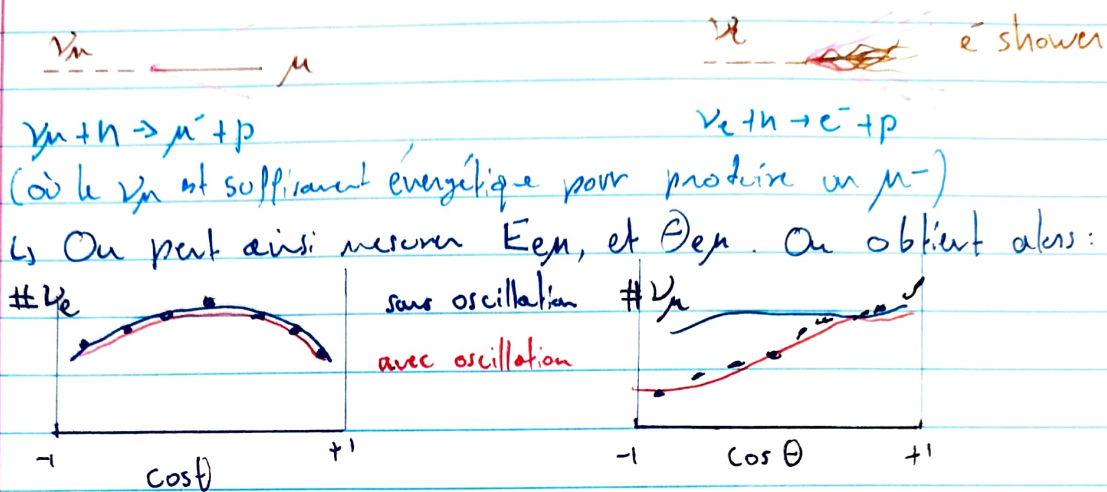 νμ μ νe e⁻ shower
νμ + n → μ⁻ + p νe + n → e⁻ + p
(où le νμ est suffisament évergétique pour produire un μ⁻)
↳ On peut ainsi mesurer Eeμ, et Θeμ. On obtient alors:
#νe sans oscillation #νμ
avec oscillation
-1 cosθ +1 -1 cos θ +1